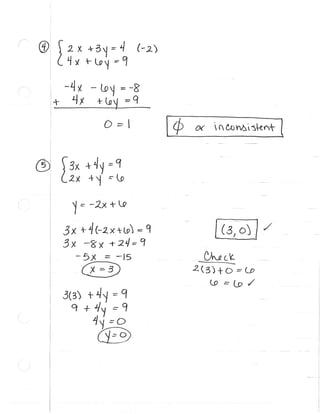 ④ { 2x + 3y = 4 (-2)
4x + 6y = 9
-4x - 6y = -8
+ 4x + 6y = 9
0 = 1
ϕ or inconsistent
⑤ { 3x + 4y = 9
2x + y = 6
y = -2x + 6
3x + 4(-2x + 6) = 9
3x - 8x + 24 = 9
-5x = -15
x = 3
(3, 0) ✓
Check
2(3) + 0 = 6
6 = 6 ✓
3(3) + 4y = 9
9 + 4y = 9
4y = 0
y = 0